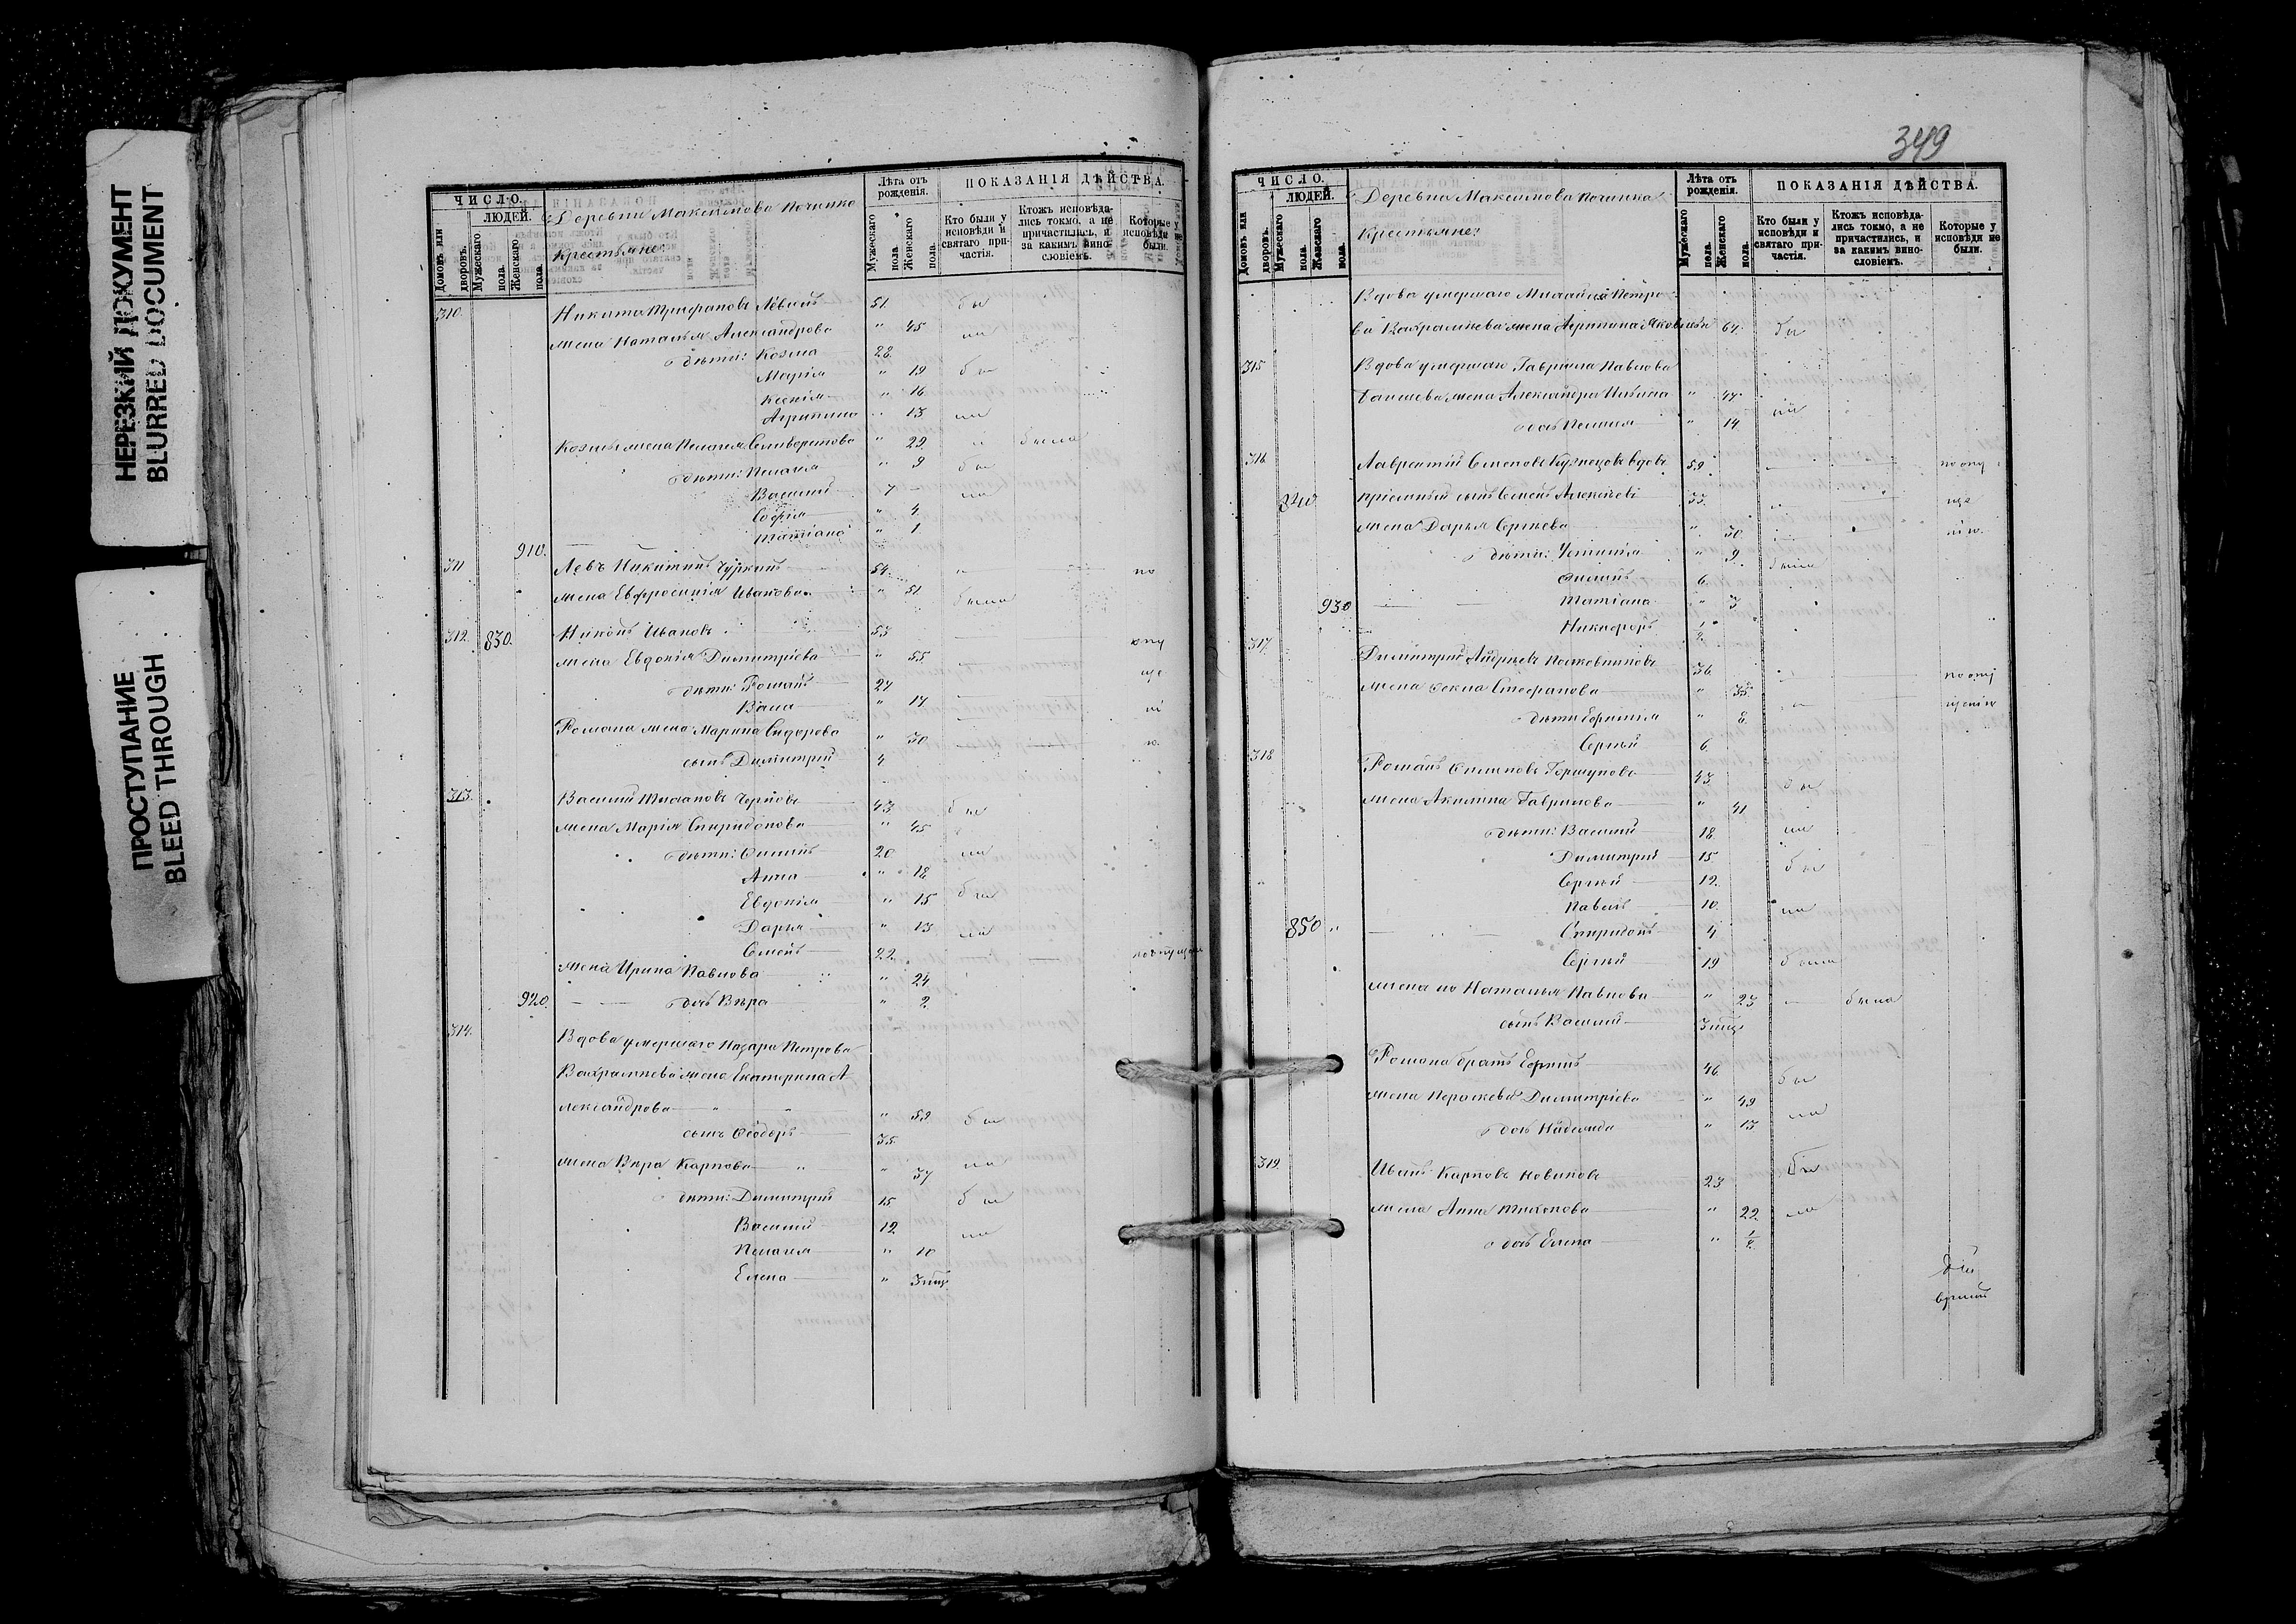 НЕРЕЗКИЙ ДОКУМЕНТ
BLURRED DOCUMENT
ПРОСТУПАНИЕ
BLEED THROUGH
ЧИСЛО.
ЛЮДЕЙ.
Домовъ или дворовъ.
Мужескаго пола.
Женскаго пола.
Деревни Максимова Починка
Крестьяне:
Лѣта отъ рожденія.
Мужескаго пола.
Женскаго пола.
ПОКАЗАНІЯ ДѢЙСТВА.
Кто были у исповѣди и святаго причастія.
Ктожъ исповѣдались токмо, а не причастились, и за какимъ винословіемъ.
Которые у исповѣди не были.
310. Никита Трифановъ 51 бы
жена Наталья Александрова " 45 ли
дѣти: Козма 28
Марія " 19 бы
Ксенія " 16
Агрипина " 13 ли
Козмы жена Пелагея Селиверстова " 29 " была
дѣти: Пелагея " 9 бы
Василий 7 ли
Софія " 4
Татіана " 1
910.
311 Левъ Никитинъ Чуркинъ 54 " по
жена Евфросинія Иванова " 51 была
312. 830. Никонъ Ивановъ 53 опу
жена Евдокія Димитріева " 55 ще
дѣти: Романъ 27
Васса " 17 ні
Романа жена Марина Сидорова " 30 ю
сынъ Димитрий 4
313. Василий Тихановъ Черновъ 43 бы
жена Марія Спиридонова " 45
дѣти: Филипъ 20 ли
Анна " 18
Евдокія " 15 бы
Дарья " 13 ли
Семенъ 22 по опущен
жена Ирина Павлова " 24
920. дочь Вѣра " 2
314. Вдова умершаго Назара Петрова
Вахрамѣева жена Екатерина А
лександрова " 59 бы
сынъ Феодоръ 35
жена Вѣра Карпова " 37 ли
дѣти: Димитрий 15 бы
Василий 12 ли
Пелагея " 10
Елена " 3 мѣц.
349
ЧИСЛО.
ЛЮДЕЙ.
Домовъ или дворовъ.
Мужескаго пола.
Женскаго пола.
Деревни Максимова Починка
Крестьяне:
Лѣта отъ рожденія.
Мужескаго пола.
Женскаго пола.
ПОКАЗАНІЯ ДѢЙСТВА.
Кто были у исповѣди и святаго причастія.
Ктожъ исповѣдались токмо, а не причастились, и за какимъ винословіемъ.
Которые у исповѣди не были.
Вдова умершаго Михаила Петро
ва Вахрамѣева жена Агрипина Яковлева 67 бы
315 Вдова умершаго Гавриила Павлова
жена Александра Ильина " 47
дочь Пелагея " 14 ли
316 Лаврентий Семеновъ Кузнецовъ вдовъ 59 по опу
840 приемный сынъ Семенъ Алексѣевъ 33 ще
жена Дарья Сергѣева " 30 нію
дѣти: " 9 были
Филипъ 6
930 Татіана " 3
Никифоръ 1/2
317. Димитрий Андреевъ Половинковъ 36 по опу
жена Фекла Стефанова " 35 щенію
дѣти Евгения " 8
Сергѣй 6
318 Романъ Филиповъ Горшуновъ 43 бы
жена Акилина Гаврилова " 41
дѣти: Василий 18 ли
Димитрий 15
Сергѣй 12 бы
Павелъ 10 ли
850 Спиридонъ 4
Сергѣй 19 были
жена его Наталья Павлова " 23 была
сынъ Василий 3 мѣц.
Романа братъ Ефимъ 46 бы
жена Параскева Димитріева " 49 ли
дочь Надежда " 13
319. Иванъ Карповъ Новиковъ 23 бы
жена Анна Тихонова " 22 ли
дочь Елена " 1/2